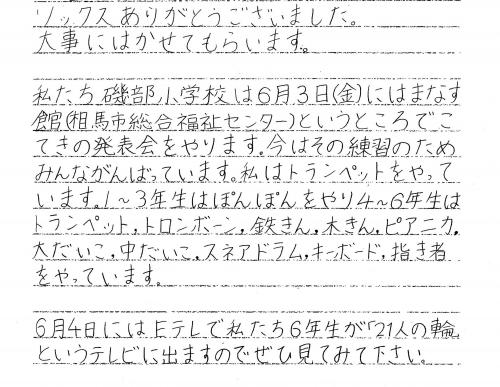 ソックスありがとうございました。
大事にはかせてもらいます。
私たち磯部小学校は6月3日(金)にはまなす
館(相馬市総合福祉センター)というところでこ
てきの発表会をやります。今はその練習のため
みんながんばっています。私はトランペットをやって
います。1~3年生はぽんぽんをやり4~6年生は
トランペット,トロンボーン,鉄きん,木きん,ピアニカ,
大だいこ,中だいこ,スネアドラム,キーボード,指き者
をやっています。
6月4日にはEテレで私たち6年生が「21人の輪」
というテレビに出ますのでぜひ見てみて下さい。